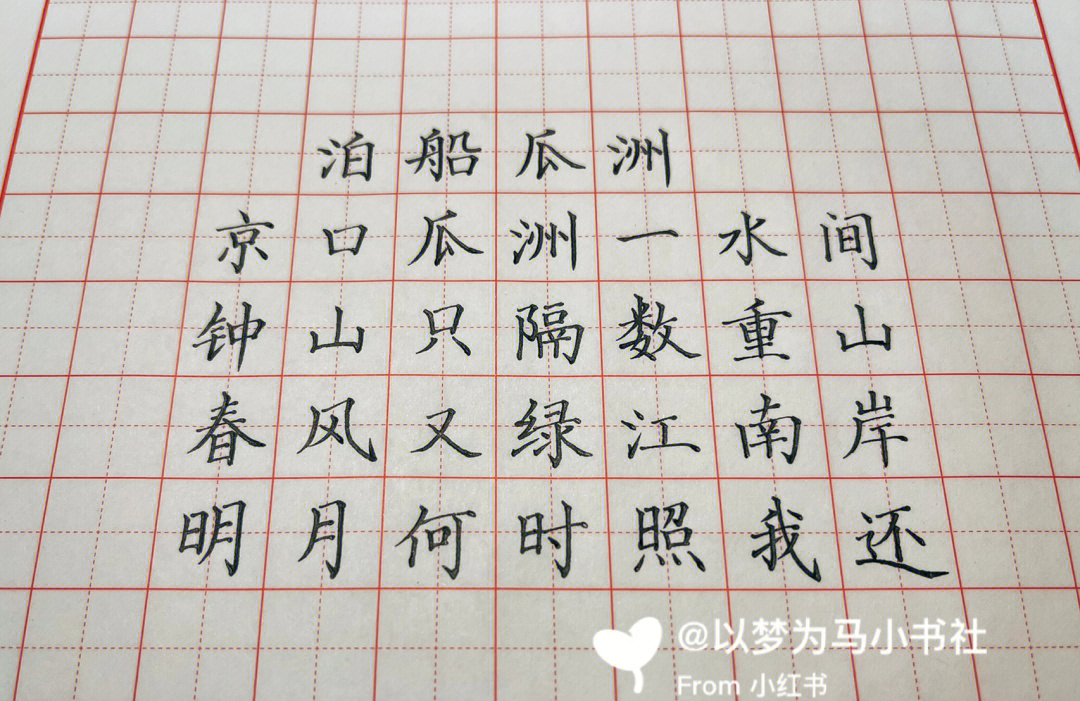 泊船瓜洲
京口瓜洲一水间
钟山只隔数重山
春风又绿江南岸
明月何时照我还
@以梦为马小书社
From 小红书